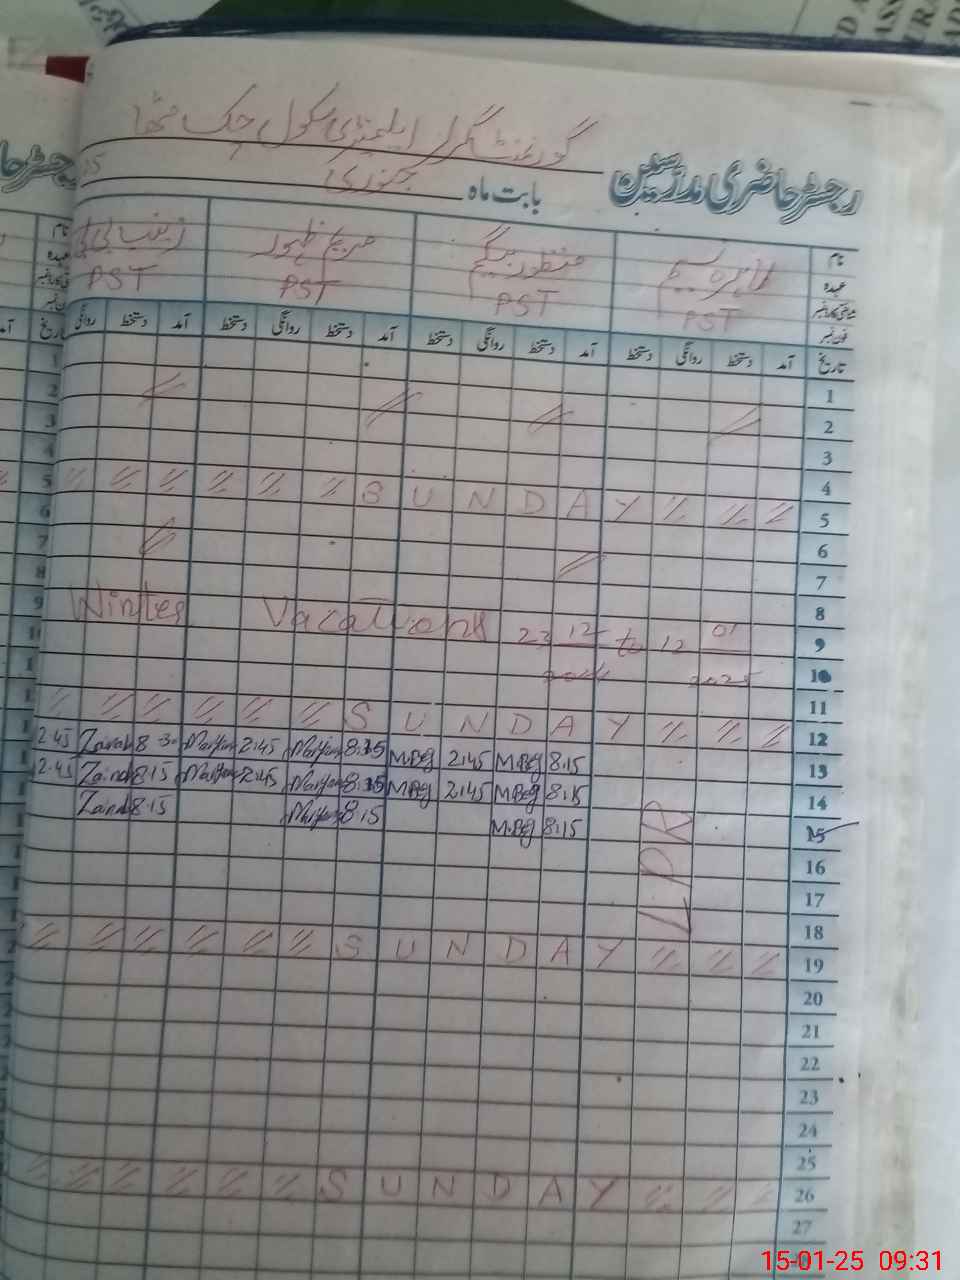 گورنمنٹ گرلز ایلیمنٹری سکول چک مٹھا
رجسٹر حاضری مدرسین
بابت ماہ جنوری
نام طاہرہ نسیم منظور بیگم مریم ظہور زینب بی بی
عہدہ PST PST PST PST
شناختی کارڈ نمبر
فون نمبر
تاریخ آمد دستخط روانگی دستخط آمد دستخط روانگی دستخط آمد دستخط روانگی دستخط آمد دستخط روانگی
1
2
3
4
SUNDAY 5
6
7
8
Winter Vacations 23 12 to 12 01 9
2024 2025 10
11
SUNDAY 12
2.45 Zainab 8-30 Maryam 2:45 Maryam 8:15 M.Beg 2:45 M.Beg 8:15 13
2.45 Zainab 8:15 Maryam 2:45 Maryam 8:15 M.Beg 2:45 M.Beg 8:15 14
Zainab 8:15 Maryam 8:15 M.Beg 8:15 15
LPR
16
17
18
SUNDAY 19
20
21
22
23
24
25
SUNDAY 26
27
28
15-01-25 09:31